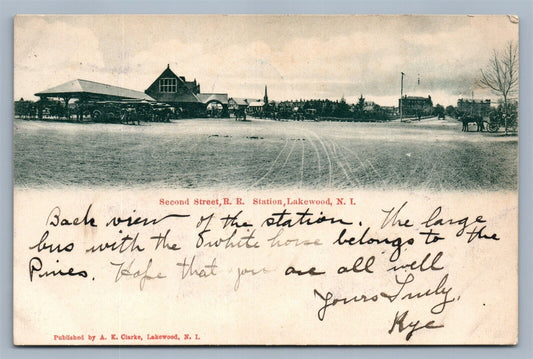 Second Street, R. R. Station, Lakewood, N. I.
Back view of the station. The large
bus with the white horse belongs to the
Pines. Hope that you are all well
Yours Truly,
Kye
Published by A. K. Clarke, Lakewood, N. I.